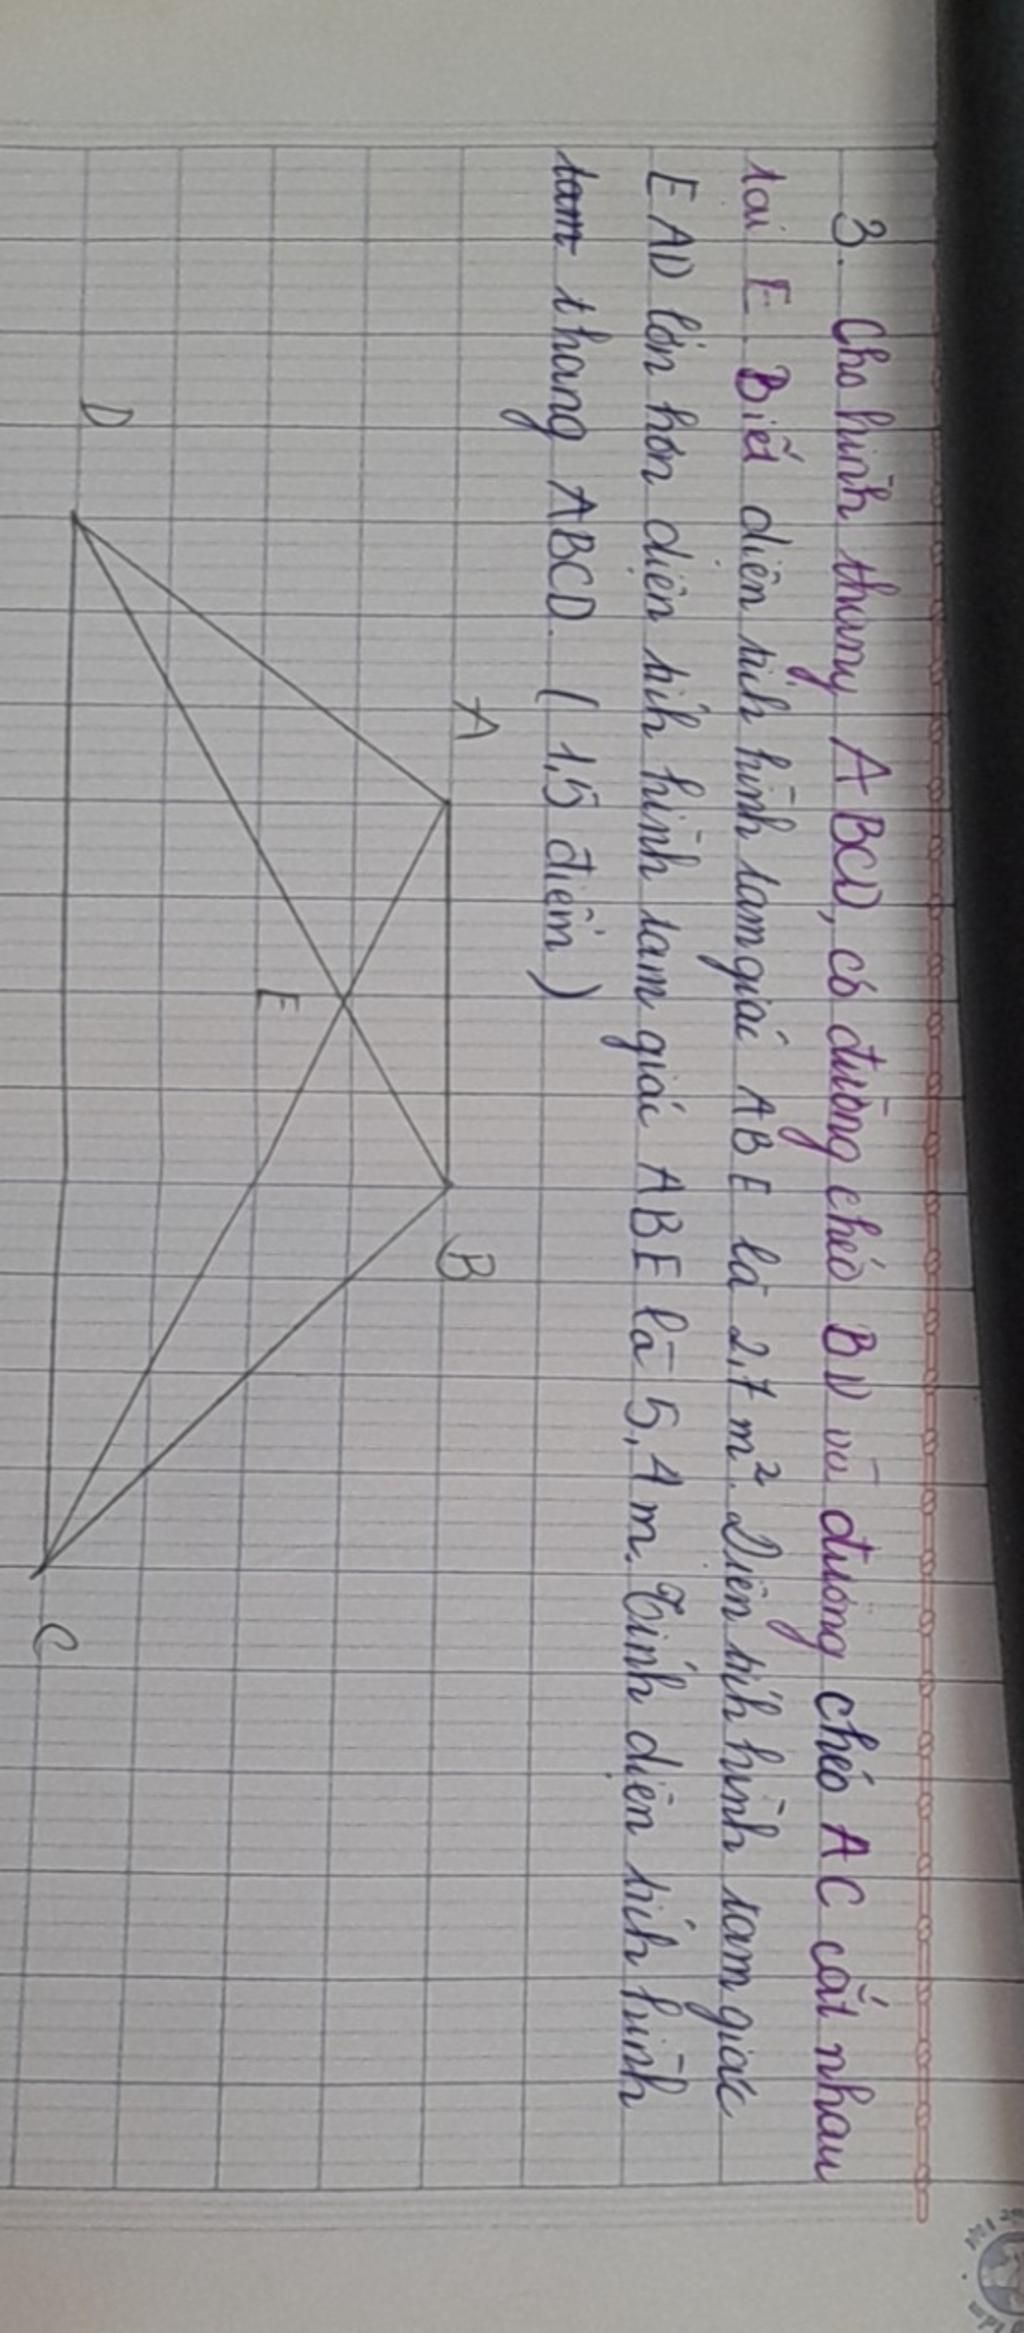 3. Cho hình thang ABCD, có đường chéo BD và đường chéo AC cắt nhau
tại E. Biết diện tích hình tam giác ABE là 2,7 m². Diện tích hình tam giác
EAD lớn hơn diện tích hình tam giác ABE là 5,4 m. Tính diện tích hình
tam thang ABCD. (1,5 điểm)
A
B
E
D
C